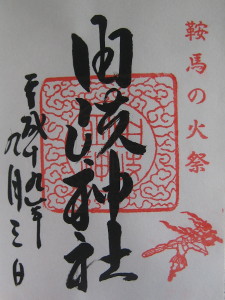 鞍馬の火祭
由岐神社
平成十九年九月三日